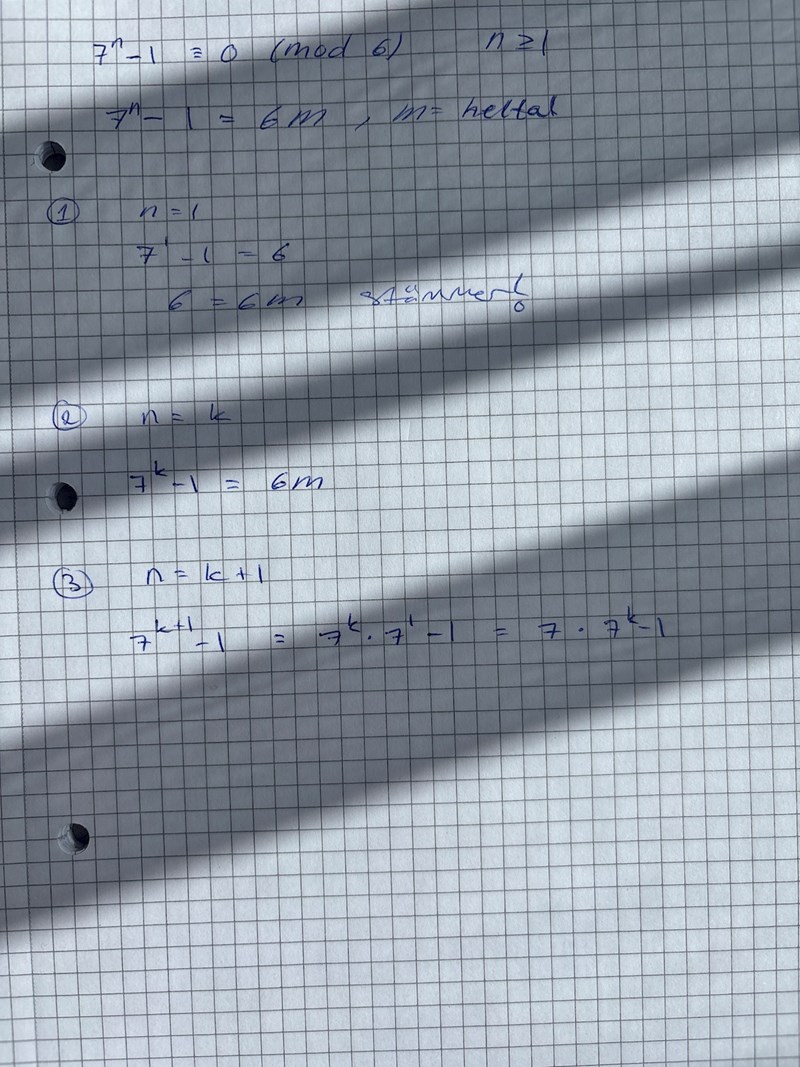 7ⁿ-1 ≡ 0 (mod 6) n ≥ 1
7ⁿ - 1 = 6m , m = heltal
① n = 1
7¹ - 1 = 6
6 = 6m stämmer!
② n = k
7ᵏ-1 = 6m
③ n = k+1
7ᵏ⁺¹-1 = 7ᵏ · 7¹ - 1 = 7 · 7ᵏ-1